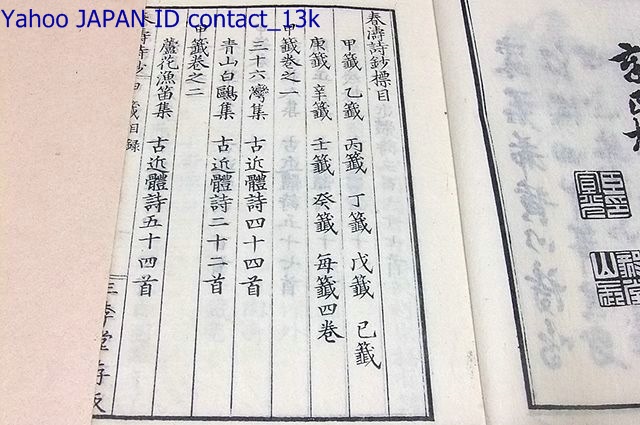 Yahoo JAPAN ID contact_13k
春濤詩鈔標目
甲籤 乙籤 丙籤 丁籤 戊籤 己籤
庚籤 辛籤 壬籤 癸籤 每籤四卷
甲籤卷之一
三十六灣集 古近體詩四十四首
青山白鷗集 古近體詩二十二首
甲籤卷之二
蘆花漁笛集 古近體詩五十四首
春濤詩鈔 甲籤目錄